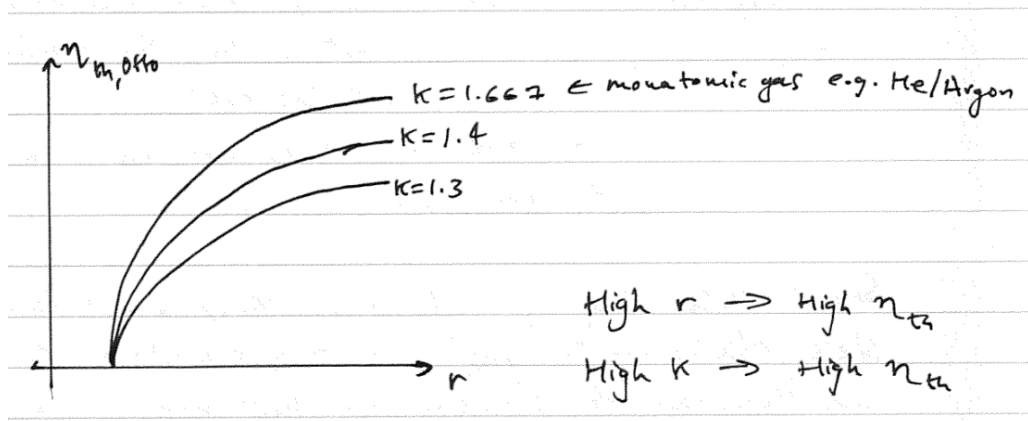 η th, Otto
K=1.667 ← monatomic gas e.g. He/Argon
K=1.4
K=1.3
High r → High η th
r
High K → High η th